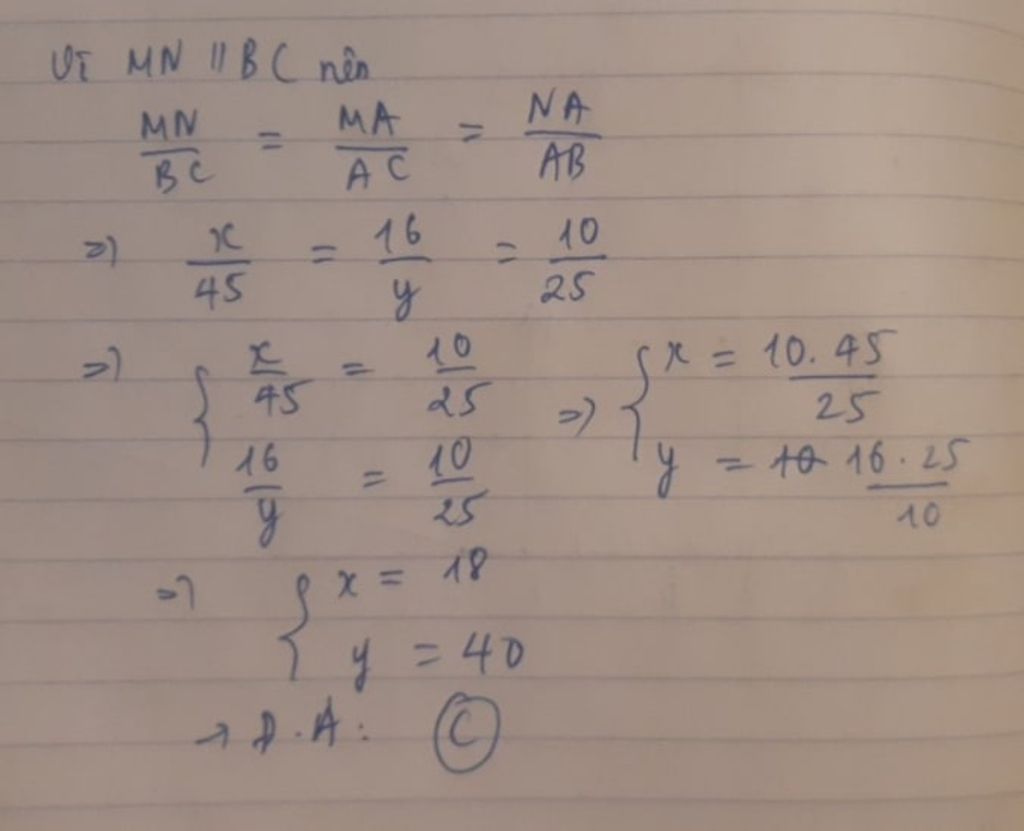 Vì MN // BC nên
MN/BC = MA/AC = NA/AB
=> x/45 = 16/y = 10/25
=> { x/45 = 10/25 => { x = 10.45/25
16/y = 10/25 y = 10 16.25/10
=> { x = 18
y = 40
→ Đ.A: C